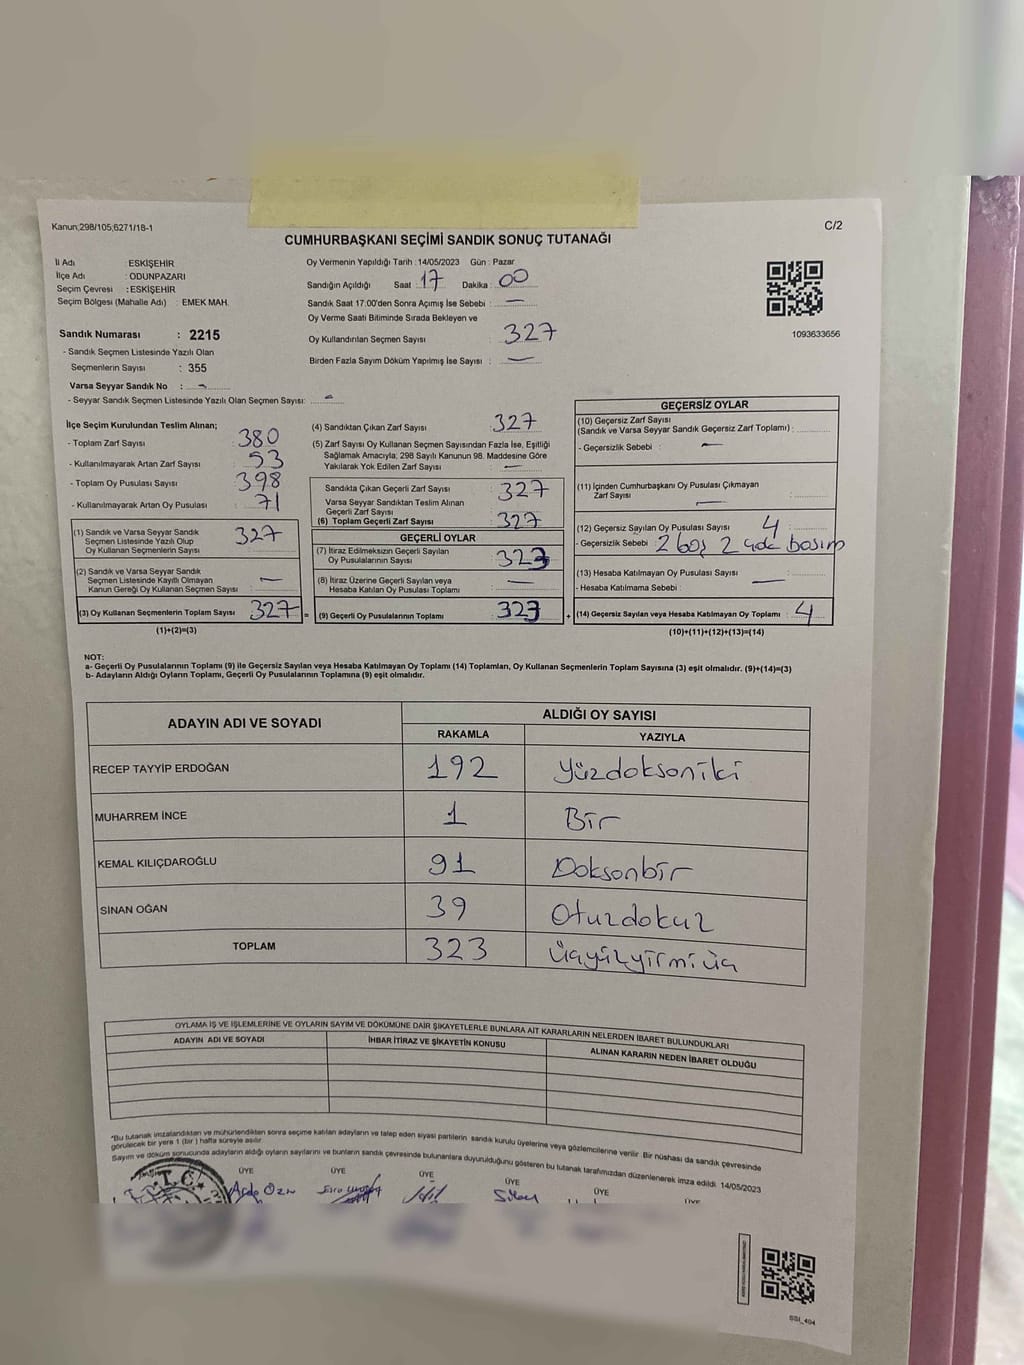 Kanun;298/105;6271/18-1
C/2
CUMHURBAŞKANI SEÇİMİ SANDIK SONUÇ TUTANAĞI
İl Adı : ESKİŞEHİR
İlçe Adı : ODUNPAZARI
Seçim Çevresi : ESKİŞEHİR
Seçim Bölgesi (Mahalle Adı) : EMEK MAH.
Sandık Numarası : 2215
- Sandık Seçmen Listesinde Yazılı Olan
Seçmenlerin Sayısı : 355
Varsa Seyyar Sandık No : -
- Seyyar Sandık Seçmen Listesinde Yazılı Olan Seçmen Sayısı: -
Oy Vermenin Yapıldığı Tarih : 14/05/2023 Gün : Pazar
Sandığın Açıldığı Saat : 17 Dakika : 00
Sandık Saat 17.00'den Sonra Açımış İse Sebebi : -
Oy Verme Saati Bitiminde Sırada Bekleyen ve
Oy Kullandırılan Seçmen Sayısı : 327
Birden Fazla Sayım Döküm Yapılmış İse Sayısı : -
1093633656
İlçe Seçim Kurulundan Teslim Alınan;
- Toplam Zarf Sayısı : 380
- Kullanılmayarak Artan Zarf Sayısı : 53
- Toplam Oy Pusulası Sayısı : 398
- Kullanılmayarak Artan Oy Pusulası : 71
(1) Sandık ve Varsa Seyyar Sandık
Seçmen Listesinde Yazılı Olup
Oy Kullanan Seçmenlerin Sayısı : 327
(2) Sandık ve Varsa Seyyar Sandık
Seçmen Listesinde Kayıtlı Olmayan
Kanun Gereği Oy Kullanan Seçmen Sayısı : -
(3) Oy Kullanan Seçmenlerin Toplam Sayısı : 327
(1)+(2)=(3)
(4) Sandıktan Çıkan Zarf Sayısı : 327
(5) Zarf Sayısı Oy Kullanan Seçmen Sayısından Fazla İse, Eşitliği
Sağlamak Amacıyla; 298 Sayılı Kanunun 98. Maddesine Göre
Yakılarak Yok Edilen Zarf Sayısı : -
Sandıkta Çıkan Geçerli Zarf Sayısı : 327
Varsa Seyyar Sandıktan Teslim Alınan
Geçerli Zarf Sayısı :
(6) Toplam Geçerli Zarf Sayısı : 327
GEÇERLİ OYLAR
(7) İtiraz Edilmeksizin Geçerli Sayılan
Oy Pusulalarının Sayısı : 323
(8) İtiraz Üzerine Geçerli Sayılan veya
Hesaba Katılan Oy Pusulası Toplamı : -
= (9) Geçerli Oy Pusulalarının Toplamı : 323
GEÇERSİZ OYLAR
(10) Geçersiz Zarf Sayısı
(Sandık ve Varsa Seyyar Sandık Geçersiz Zarf Toplamı) :
- Geçersizlik Sebebi : -
(11) İçinden Cumhurbaşkanı Oy Pusulası Çıkmayan
Zarf Sayısı : -
(12) Geçersiz Sayılan Oy Pusulası Sayısı : 4
- Geçersizlik Sebebi : 2 boş 2 ade basım
(13) Hesaba Katılmayan Oy Pusulası Sayısı : -
- Hesaba Katılmama Sebebi :
+ (14) Geçersiz Sayılan veya Hesaba Katılmayan Oy Toplamı : 4
(10)+(11)+(12)+(13)=(14)
NOT:
a- Geçerli Oy Pusulalarının Toplamı (9) ile Geçersiz Sayılan veya Hesaba Katılmayan Oy Toplamı (14) Toplamları, Oy Kullanan Seçmenlerin Toplam Sayısına (3) eşit olmalıdır. (9)+(14)=(3)
b- Adayların Aldığı Oyların Toplamı, Geçerli Oy Pusulalarının Toplamına (9) eşit olmalıdır.
ADAYIN ADI VE SOYADI
ALDIĞI OY SAYISI
RAKAMLA YAZIYLA
RECEP TAYYİP ERDOĞAN 192 Yüzdoksaniki
MUHARREM İNCE 1 Bir
KEMAL KILIÇDAROĞLU 91 Doksanbir
SİNAN OĞAN 39 Otuzdokuz
TOPLAM 323 Üçyüzyirmiüç
OYLAMA İŞ VE İŞLEMLERİNE VE OYLARIN SAYIM VE DÖKÜMÜNE DAİR ŞİKAYETLERLE BUNLARA AİT KARARLARIN NELERDEN İBARET BULUNDUKLARI
ADAYIN ADI VE SOYADI
İHBAR İTİRAZ VE ŞİKAYETİN KONUSU
ALINAN KARARIN NEDEN İBARET OLDUĞU
*Bu tutanak imzalandıktan ve mühürlendikten sonra seçime katılan adayların ve talep eden siyasi partilerin sandık kurulu üyelerine veya gözlemcilerine verilir. Bir nüshası da sandık çevresinde
görülecek bir yere 1 (bir) hafta süreyle asılır.
Sayım ve döküm sonucunda adayların aldığı oyların sayılarını ve bunların sandık çevresinde bulunanlara duyurulduğunu gösteren bu tutanak tarafımızdan düzenlenerek imza edildi. 14/05/2023
ÜYE ÜYE ÜYE ÜYE ÜYE ÜYE
T.C.